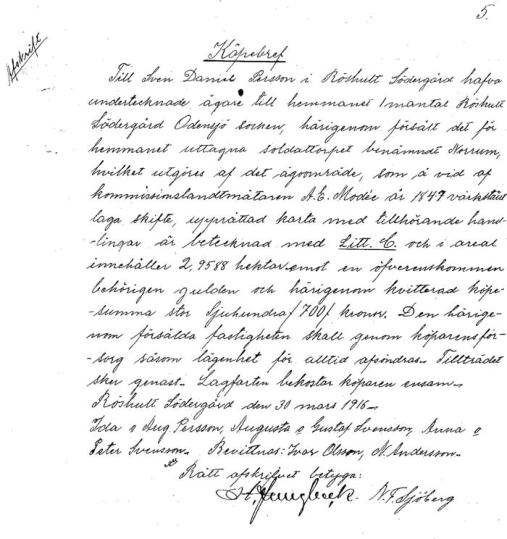 5.
Afskrift
Köpebref
Till Sven Daniel Persson i Röshult Södergård hafva
undertecknade ägare till hemmanet 1 mantal Röshult
Södergård Odensjö socken, härigenom försålt det för
hemmanet uttagna soldattorpet benämndt Norrum,
hvilket utgöres af det ägoområde, som å vid af
kommissionslandtmätaren A. E. Modée år 1847 värkställd
laga skifte, upprättad karta med tillhörande hand-
-lingar är betecknad med Litt. C. och i areal
innehåller 2,9588 hektar emot en öfverenskommen
behörigen gulden och härigenom kvitterad köpe-
summa stor Sjuhundra /700/ kronor. Den härige-
nom försålda fastigheten skall genom köparens för-
-sorg såsom lägenhet för alltid afsöndras. Tillträdet
sker genast. Lagfarten bekostar köparen ensam.
Röshult Södergård den 30 mars 1916.
Ida o Aug. Persson, Augusta o Gustaf Svensson, Anna o
Peter Svensson. Bevittnas: Ivar Olsson, N. Andersson.
Rätt afskrifvet betyga:
Ljungbeck. N. F. Sjöberg